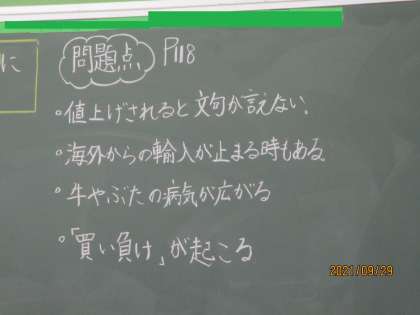 に
問題点 P118
。値上げされると文句が言えない。
。海外からの輸入が止まる時もある
。牛やぶたの病気が広がる
。「買い負け」が起こる
2021/09/29